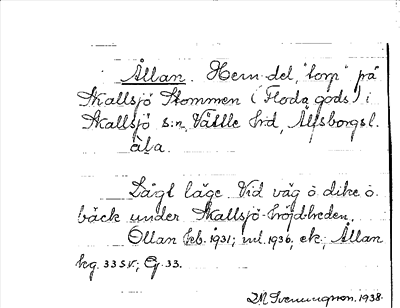 Ållan. Hem.del, "torp" på
Skallsjö Stommen (Floda gods) i
Skallsjö s:n, Vättle hrd, Älfsborgs l.
åla.
Lågt läge. Vid väg o dike o.
bäck under Skallsjö-höjdbreden.
Ollan Geb. 1931; ml. 1936, ek.; Ållan
hg. 33 SV.; G. 33.
Svenningson. 1938.